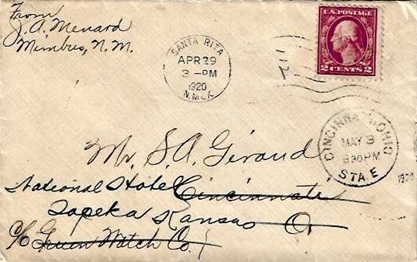 From
J. A. Menard
Mimbres, N. M.
SANTA RITA
APR 29
3 - PM
1920
N. MEX.
U.S. POSTAGE
2 CENTS 2
12
Mr. S. A. Giroud
National Hotel Cincinnati
Topeka Kansas O.
c/o Gruen Watch Co.
CINCINNATI, OHIO
MAY 3
6 30 PM
STA. E
1920